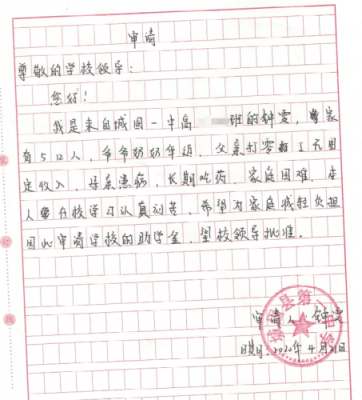 申请
尊敬的学校领导：
您好！
我是来自城固一中高 班的钟雯，家
有5口人，爷爷奶奶年迈，父亲打零工不固
定收入，母亲患病，长期吃药，家庭困难，本
人在校学习认真刻苦，希望为家庭减轻负担
因此申请学校的助学金，望校领导批准。
申请人 钟雯
日期：2020年4月21日